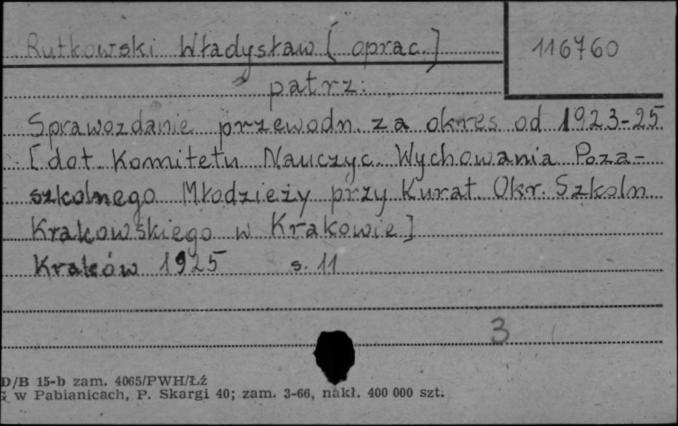 Rutkowski Władysław [oprac.]
116760
patrz:
Sprawozdanie przewodn. za okres od 1923-25
[dot. Komitetu Nauczyc. Wychowania Poza-
szkolnego Młodzieży przy Kurat. Okr. Szkoln
Krakowskiego w Krakowie]
Kraków 1925 s. 11
3
D/B 15-b zam. 4065/PWH/Łź
G w Pabianicach, P. Skargi 40; zam. 3-66, nakł. 400 000 szt.